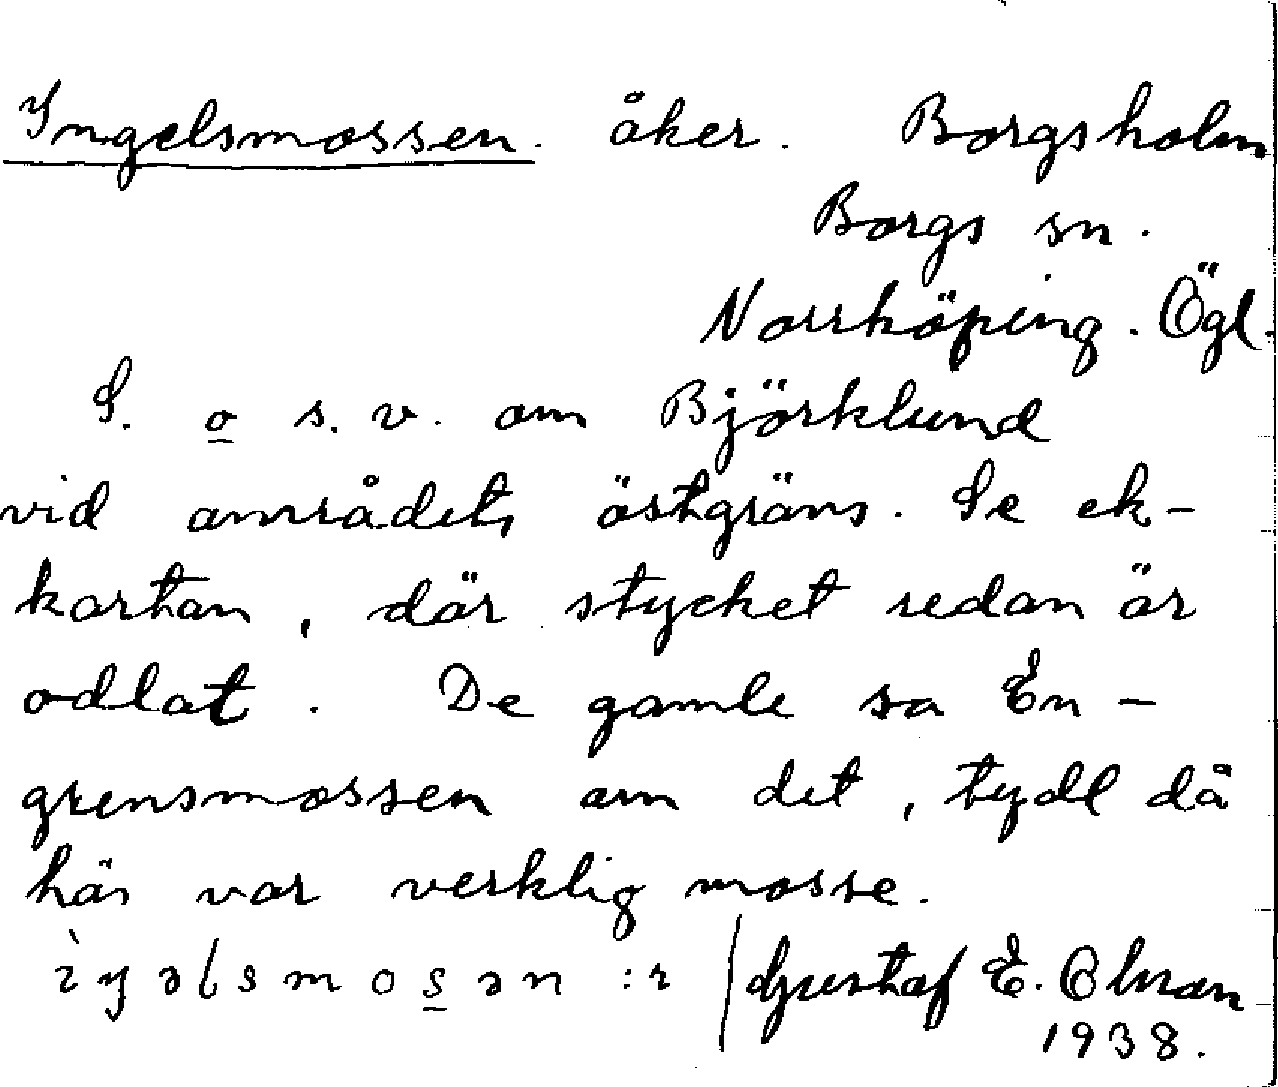 Ingelsmossen. åker. Borgsholm
Borgs sn.
Norrköping. Ögl.
S. o s. v. om Björklund
vid områdets östgräns. Se ek-
kartan, där stycket redan är
odlat. De gamle sa En-
grensmossen om det, tydl då
här var verklig mosse.
ìŋəlsmosən :r / Gustaf E. Olson
1938.